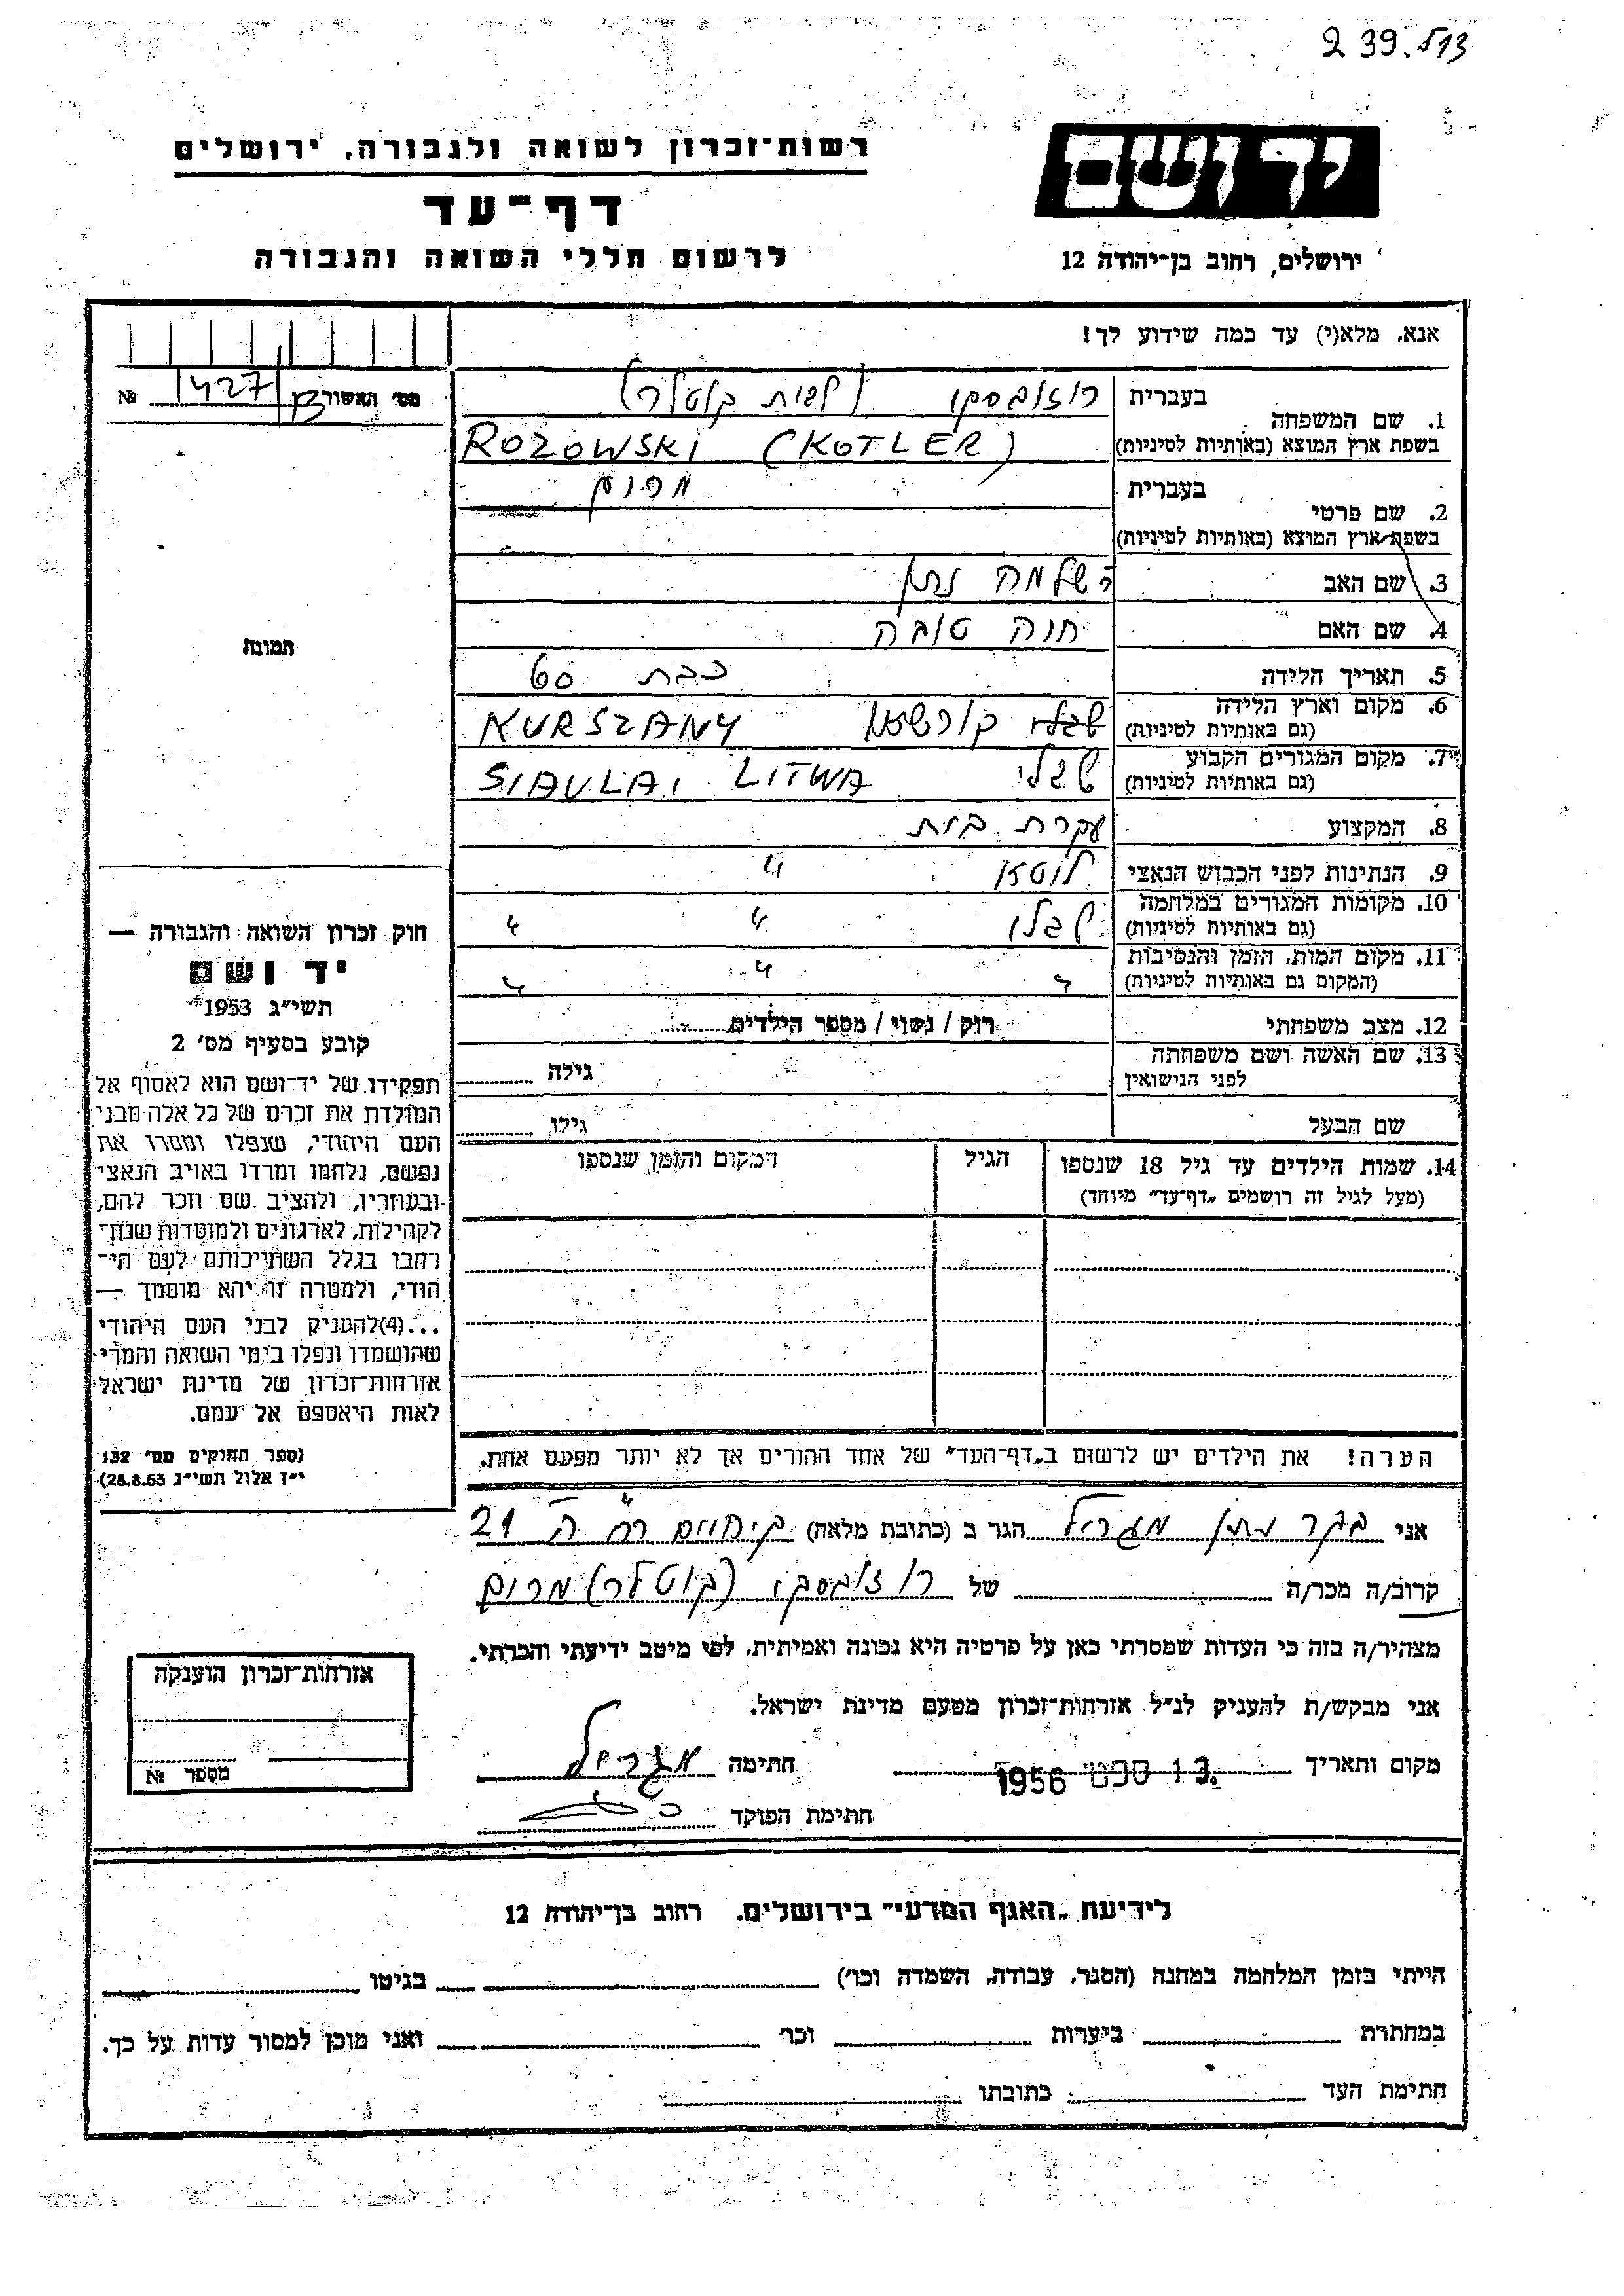 239.513
יד ושם
רשות־זכרון לשואה ולגבורה, ירושלים
דף־עד
לרשום חללי השואה והגבורה
ירושלים, רחוב בן־יהודה 12
אנא, מלא(י) עד כמה שידוע לך!
מס׳ האשור 1427 №
1. שם המשפחה בעברית רוזובסקי (לבית קוטלר)
בשפת ארץ המוצא (באותיות לטיניות) ROZOWSKI (KOTLER)
2. שם פרטי בעברית מרים
בשפת ארץ המוצא (באותיות לטיניות)
3. שם האב שלמה נתן
4. שם האם חוה טובה
5. תאריך הלידה כבת 60
6. מקום וארץ הלידה (גם באותיות לטיניות) שבלי קורשאן KURSZANY
7. מקום המגורים הקבוע (גם באותיות לטיניות) שבלי SIAULAI LITWA
8. המקצוע עקרת בית
9. הנתינות לפני הכבוש הנאצי ליטאית "
10. מקומות המגורים במלחמה (גם באותיות לטיניות) שבלי " "
11. מקום המות, הזמן והנסיבות (המקום גם באותיות לטיניות) " " "
12. מצב משפחתי רוק / נשוי / מספר הילדים
13. שם האשה ושם משפחתה לפני הנישואין גילה
שם הבעל גילו
14. שמות הילדים עד גיל 18 שנספו הגיל המקום והזמן שנספו
(מעל לגיל זה רושמים „דף־עד״ מיוחד)
תמונה
חוק זכרון השואה והגבורה —
יד ושם
תשי״ג 1953
קובע בסעיף מס׳ 2
תפקידו של יד־ושם הוא לאסוף אל
המולדת את זכרם של כל אלה מבני
העם היהודי, שנפלו ומסרו את
נפשם, נלחמו ומרדו באויב הנאצי
ובעוזריו, ולהציב שם וזכר להם,
לקהילות, לארגונים ולמוסדות שנח־
רבו בגלל השתייכותם לעם הי־
הודי, ולמטרה זו יהא מוסמך —
...(4) להעניק לבני העם היהודי
שהושמדו ונפלו בימי השואה והמרי
אזרחות־זכרון של מדינת ישראל
לאות היאספם אל עמם.
(ספר החוקים מס׳ 132
י״ז אלול תשי״ג 28.8.53)
הערה! את הילדים יש לרשום ב„דף־העד״ של אחד ההורים אך לא יותר מפעם אחת.
אני נתן הגר ב (כתובת מלאה) ק. חיים רח ה 21
קרוב/ה מכר/ה של רוזובסקי (קוטלר) מרים
מצהיר/ה בזה כי העדות שמסרתי כאן על פרטיה היא נכונה ואמיתית, לפי מיטב ידיעתי והכרתי.
אני מבקש/ת להעניק לנ״ל אזרחות־זכרון מטעם מדינת ישראל.
מקום ותאריך 13. ספט 1956 חתימה
חתימת הפוקד
אזרחות־זכרון הוענקה
מספר №
לידיעת „האגף המדעי״ בירושלים. רחוב בן־יהודה 12
הייתי בזמן המלחמה במחנה (הסגר, עבודה, השמדה וכו׳) בגיטו
במחתרת ביערות וכו׳ ואני מוכן למסור עדות על כך.
חתימת העד כתובתו